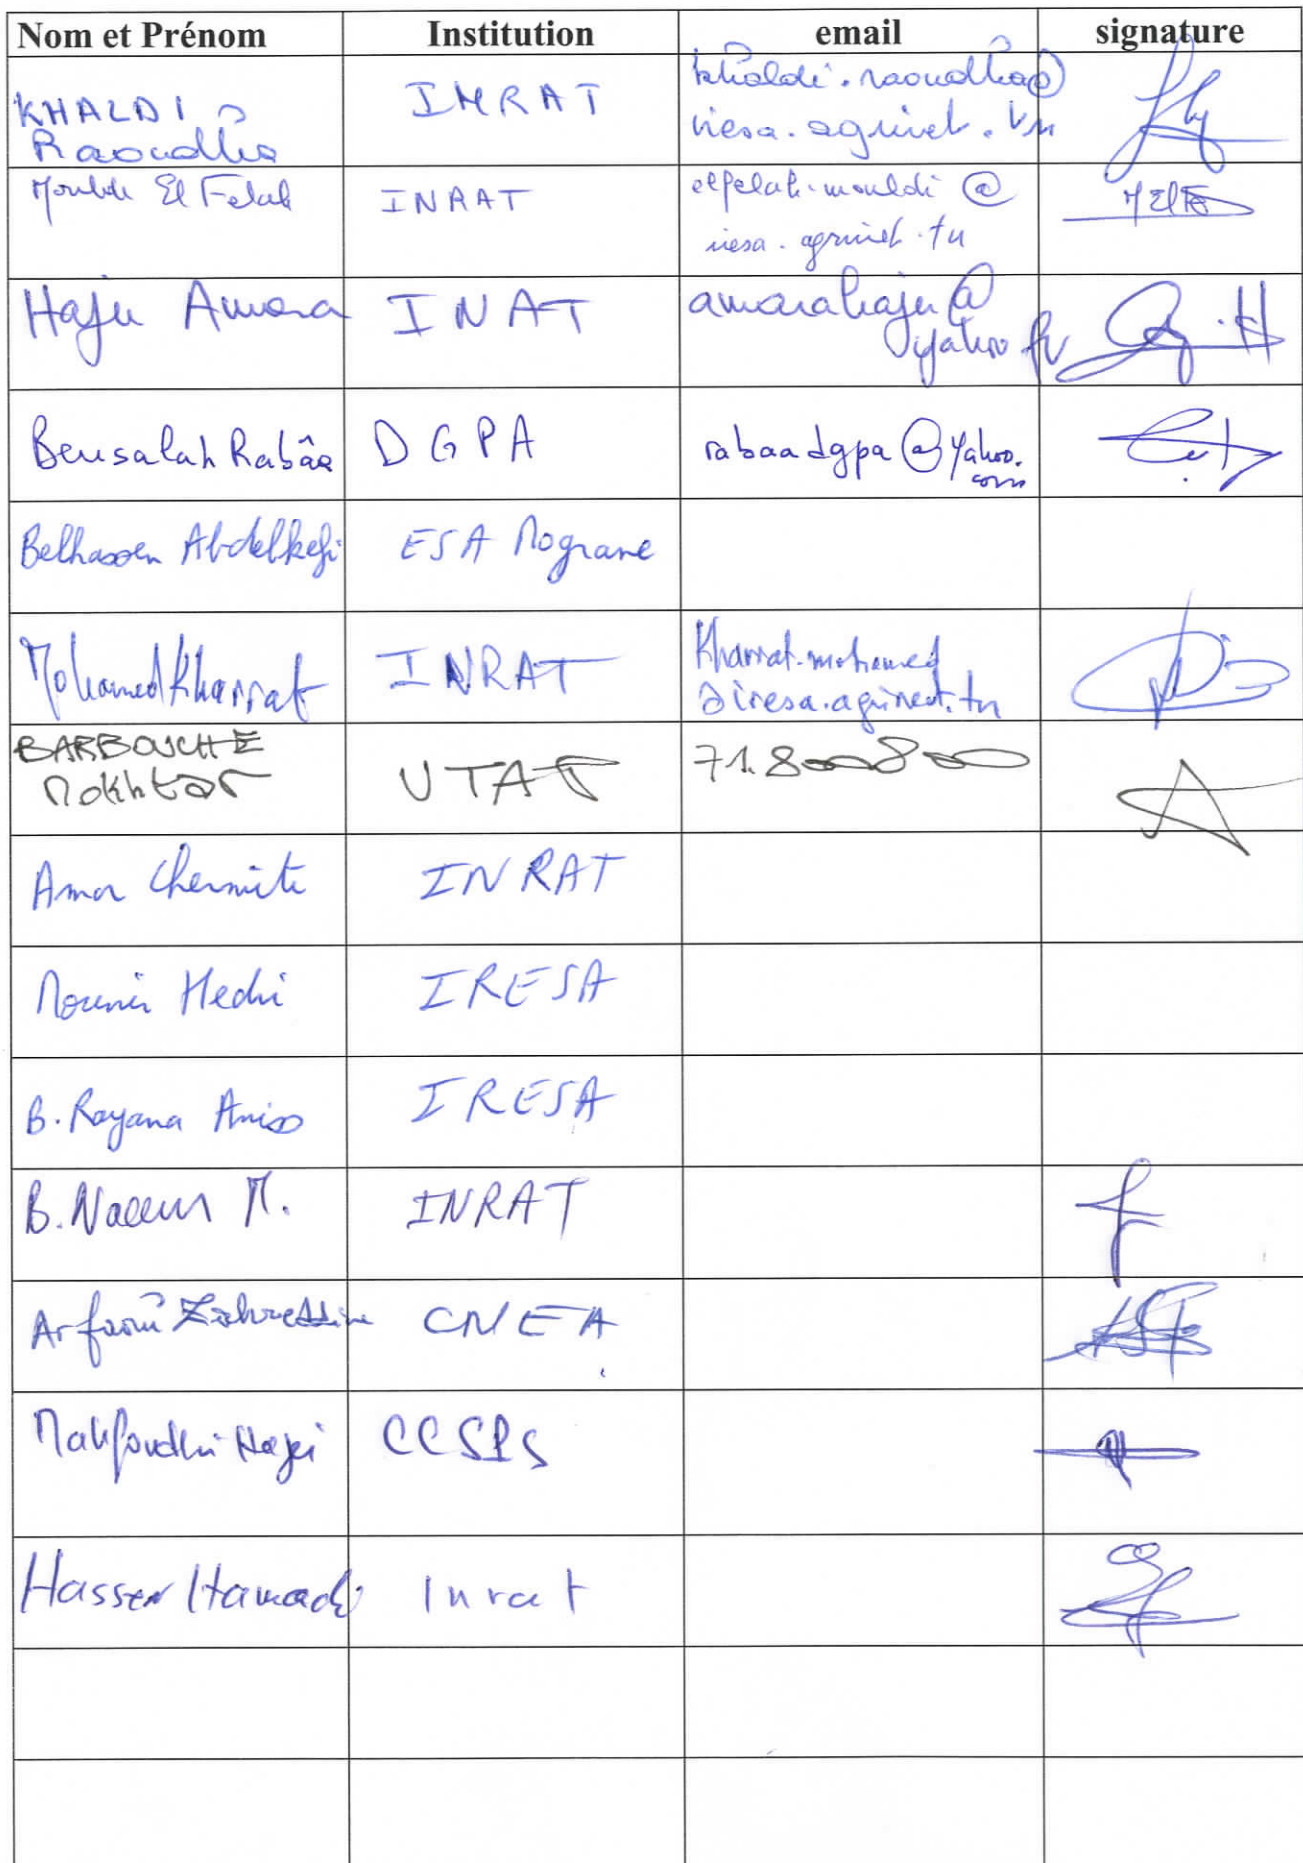 Nom et Prénom Institution email signature
KHALDI INRAT khaldi.raoudha@
Raoudha iresa.agrinet.tn
Mouldi El Felah INRAT elfelah.mouldi @
iresa.agrinet.tn
Hajer Amara INAT amarahajer@
yahoo fr
Bensalah Rabâa DGPA rabaadgpa@yahoo.
com
Belhassen Abdelkefi ESA Mograne
Mohamed Kharrat INRAT Kharrat.mohamed
@iresa.agrinet.tn
BARBOUCHE UTAP 71.800800
Mokhtar
Amor Chermiti INRAT
Mounir Hedri IRESA
B. Rayana Aniss IRESA
B. Naceur M. INRAT
Arfaoui Zohreddine CNEA
Mahfoudhi Hajer CCSPS
Hassen Hamadi Inrat